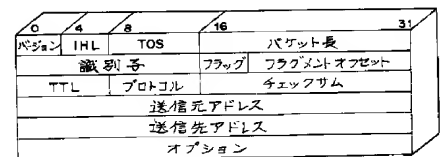 0 4 8 16 31
バージョン IHL TOS パケット長
識別子 フラッグ フラグメントオフセット
TTL プロトコル チェックサム
送信元アドレス
送信先アドレス
オプション